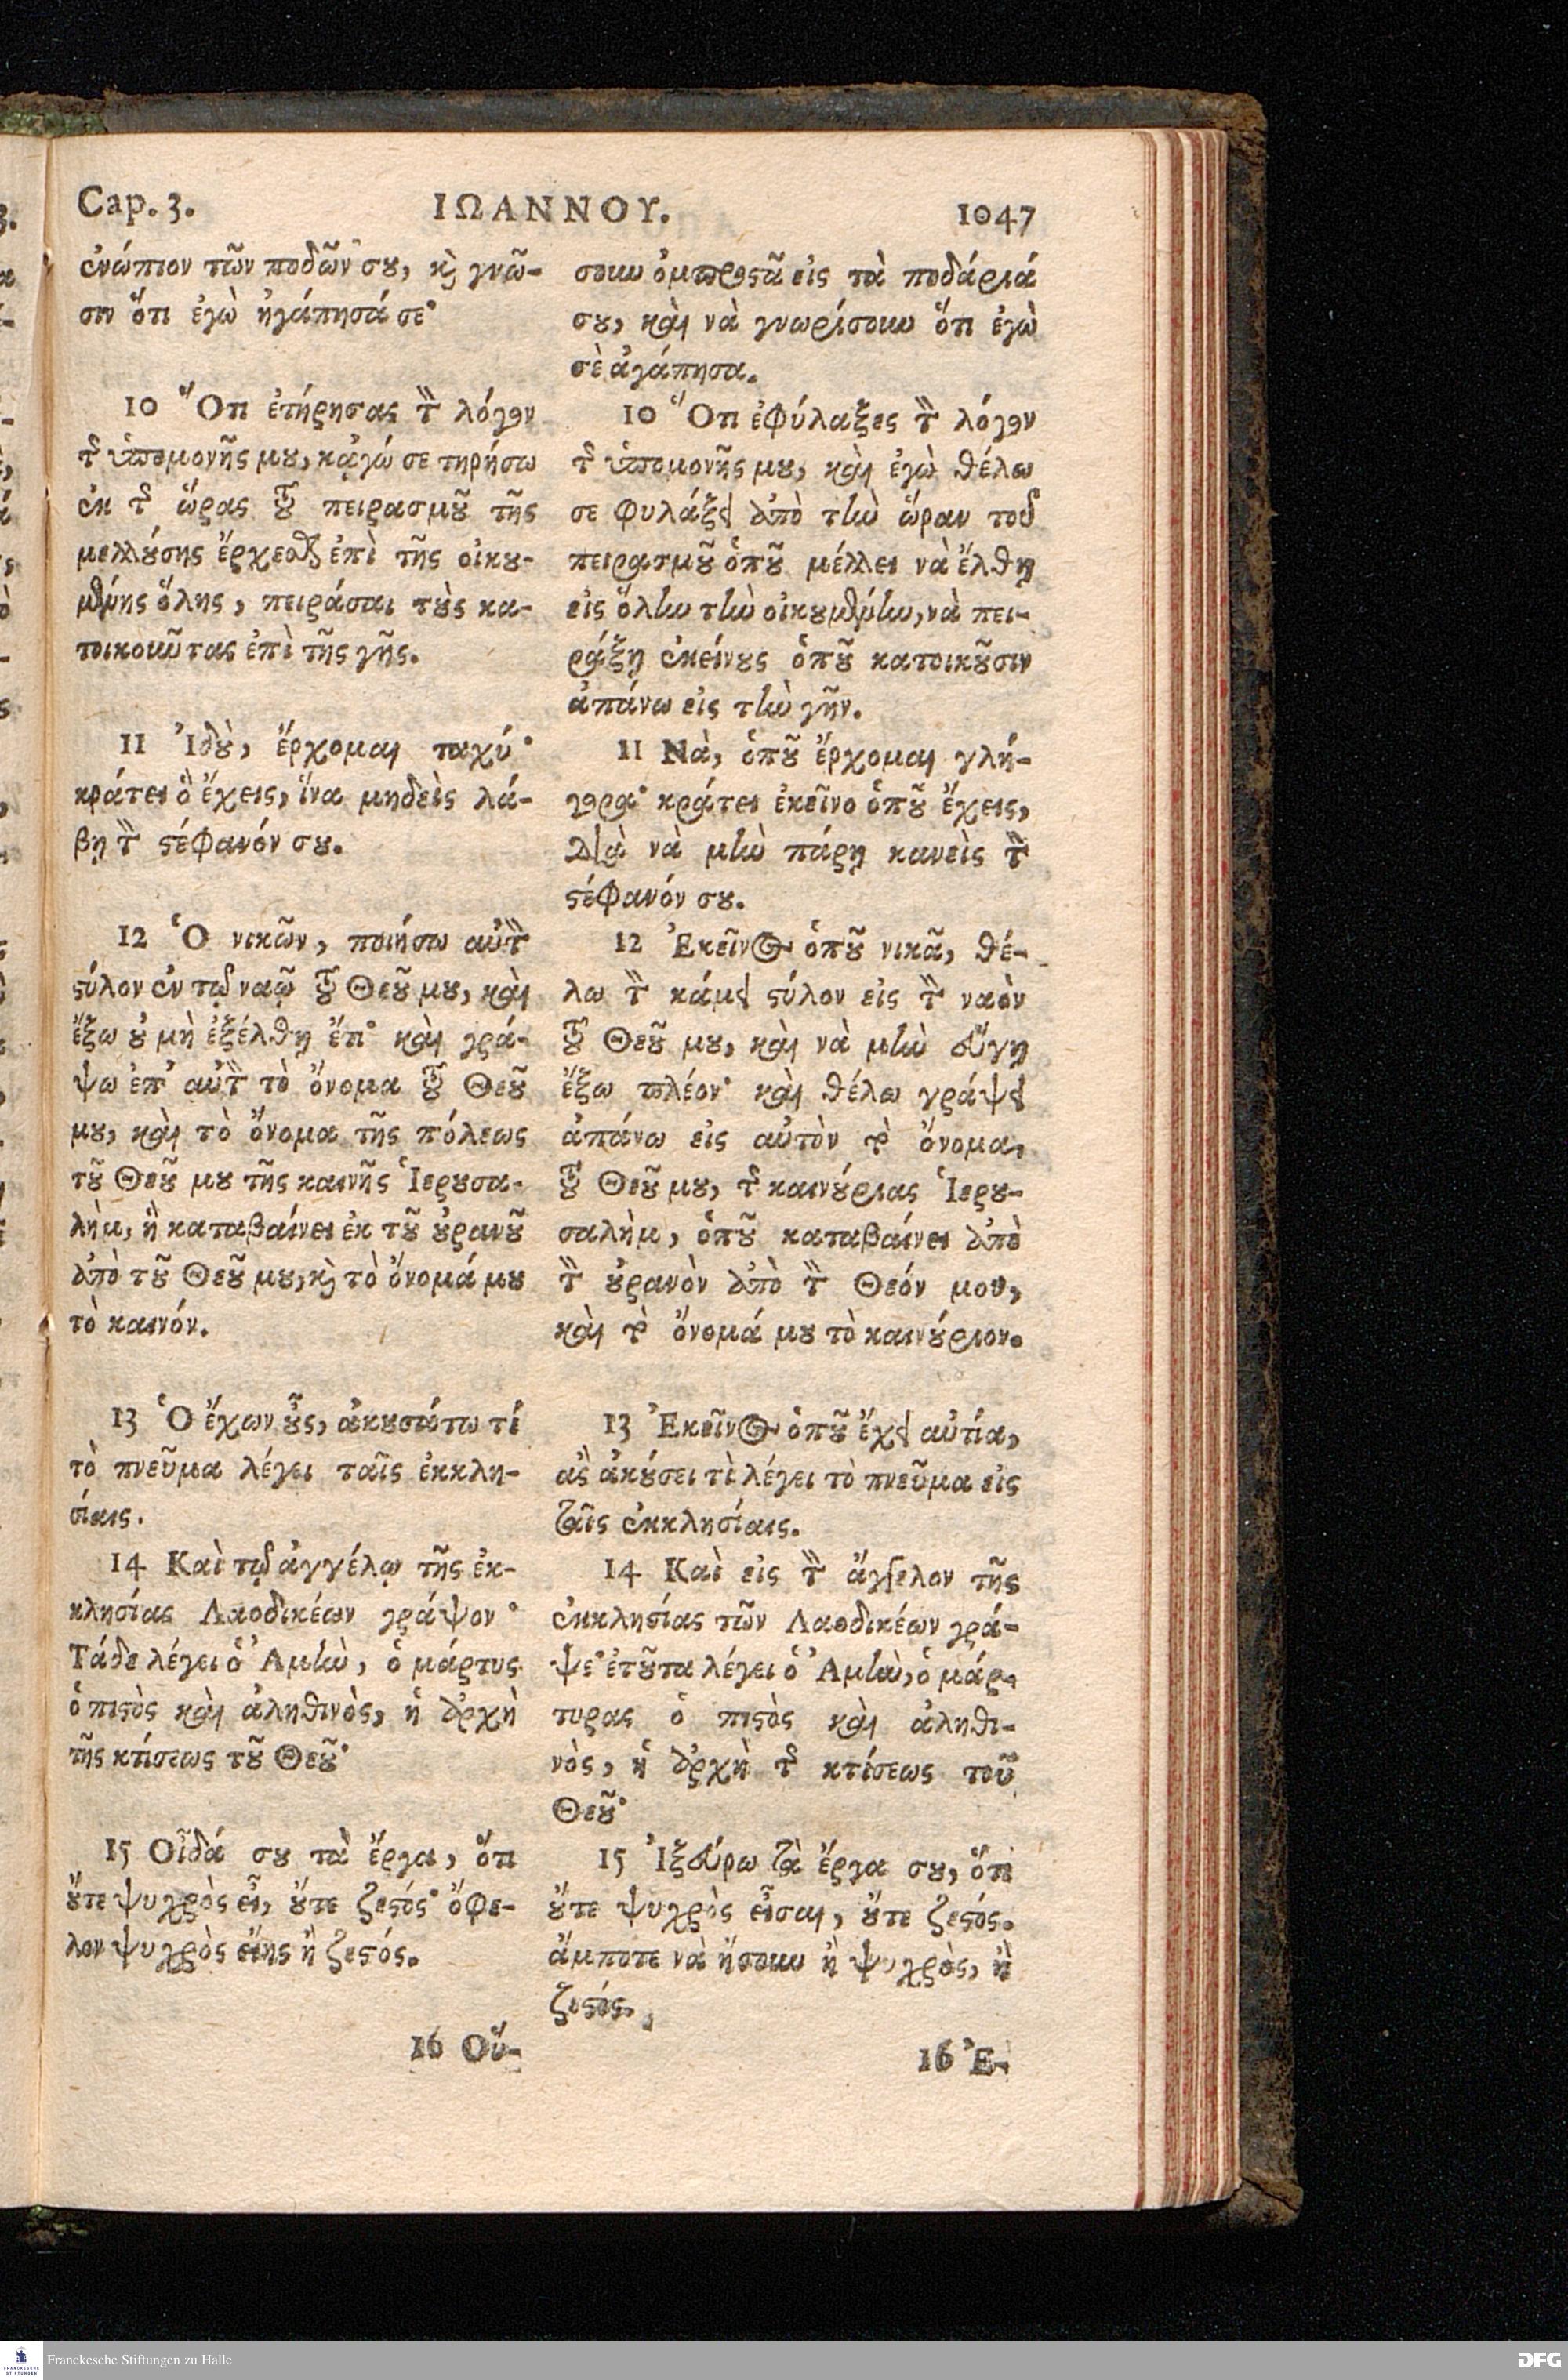 Cap. 3.
ΙΩΑΝΝΟΥ.
1047
ἐνώπιον τῶν ποδῶν σȣ, κὶ γνῶ-
σιν ὅτι ἐγὼ ἠγάπησά σε·
10 Ὅτι ἐτήρησας τὸν λόγον
τῆς ὑπομονῆς μȣ, κᾀγώ σε τηρήσω
ἐκ τῆς ὥρας τοῦ πειρασμȣ͂ τῆς
μελλȣ́σης ἔρχεσθαι ἐπὶ τῆς οἰκȣ-
μένης ὅλης, πειράσαι τȣ̀ς κα-
τοικοιῦτας ἐπὶ τῆς γῆς.
11 Ἰδȣ̀, ἔρχομαι ταχύ·
κράτει ὃ ἔχεις, ἵνα μηδεὶς λά-
βῃ τὸν ϛέφανόν σȣ.
12 Ὁ νικῶν, ποιήσω αὐτὸν
ϛύλον ἐν τῷ ναῷ τοῦ Θεȣ͂ μȣ, καὶ
ἔξω ȣ̓ μὴ ἐξέλθῃ ἔτι· καὶ γρά-
ψω ἐπ' αὐτὸν τὸ ὄνομα τοῦ Θεȣ͂
μȣ, καὶ τὸ ὄνομα τῆς πόλεως
τȣ͂ Θεȣ͂ μȣ τῆς καινῆς Ἱερȣσα-
λὴμ, ἣ καταβαίνει ἐκ τȣ͂ ȣ̓ρανȣ͂
ἀπὸ τȣ͂ Θεȣ͂ μȣ, κὶ τὸ ὄνομά μȣ
τὸ καινόν.
13 Ὁ ἔχων ȣ̓͂ς, ἀκȣσάτω τί
τὸ πνεῦμα λέγει ταῖς ἐκκλη-
σίαις.
14 Καὶ τῷ ἀγγέλῳ τῆς ἐκ-
κλησίας Λαοδικέων γράψον·
Τάδε λέγει ὁ Ἀμὴν, ὁ μάρτυς
ὁ πιϛὸς καὶ ἀληθινὸς, ἡ ἀρχὴ
τῆς κτίσεως τȣ͂ Θεȣ͂·
15 Οἶδά σȣ τὰ ἔργα, ὅτι
ȣ̓́τε ψυχρὸς εἶ, ȣ̓́τε ζεϛός· ὄφε-
λον ψυχρὸς εἴης ἢ ζεϛός.
16 Οὕ-
σουν ὀμπροϛᾶ εἰς τὰ ποδάριά
σȣ, καὶ νὰ γνωρίσουν ὅτι ἐγὼ
σὲ ἀγάπησα.
10 Ὅτι ἐφύλαξες τὸν λόγον
τῆς ὑπομονῆς μȣ, καὶ ἐγὼ θέλω
σε φυλάξει ἀπὸ τὴν ὥραν τοῦ
πειρασμȣ͂ ὁπȣ͂ μέλλει νὰ ἔλθῃ
εἰς ὅλην τὴν οἰκȣμένην, νὰ πει-
ράξῃ ἐκείνȣς ὁπȣ͂ κατοικȣ͂σιν
ἀπάνω εἰς τὴν γῆν.
11 Νὰ, ὁπȣ͂ ἔρχομαι γλή-
γορα· κράτει ἐκεῖνο ὁπȣ͂ ἔχεις,
διὰ νὰ μὴν πάρῃ κανεὶς τὸν
ϛέφανόν σȣ.
12 Ἐκεῖνος ὁπȣ͂ νικᾶ, θέ-
λω τὸν κάμει ϛύλον εἰς τὸν ναὸν
τοῦ Θεȣ͂ μȣ, καὶ νὰ μὴν εὔγῃ
ἔξω πλέον· καὶ θέλω γράψει
ἀπάνω εἰς αὐτὸν τὸ ὄνομα,
τοῦ Θεȣ͂ μȣ, τῆς καινȣ́ριας Ἱερȣ-
σαλὴμ, ὁπȣ͂ καταβαίνει ἀπὸ
τὸν ȣ̓ρανὸν ἀπὸ τὸν Θεόν μου,
καὶ τὸ ὄνομά μȣ τὸ καινȣ́ριον.
13 Ἐκεῖνος ὁπȣ͂ ἔχει αὐτία,
ἂς ἀκȣ́σει τὶ λέγει τὸ πνεῦμα εἰς
ταῖς ἐκκλησίαις.
14 Καὶ εἰς τὸν ἄγγελον τῆς
ἐκκλησίας τῶν Λαοδικέων γρά-
ψε· ἐτȣ͂τα λέγει ὁ Ἀμὴν, ὁ μάρ-
τυρας ὁ πιϛὸς καὶ ἀληθι-
νὸς, ἡ ἀρχὴ τῆς κτίσεως τοῦ
Θεȣ͂·
15 Ἰξεύρω τὰ ἔργα σȣ, ὅτι
ȣ̓́τε ψυχρὸς εἶσαι, ȣ̓́τε ζεϛός.
ἄμποτε νὰ ἤσουν ἢ ψυχρὸς, ἢ
ζεϛός.
16 Ἐ-
Franckesche Stiftungen zu Halle
FRANCKESCHE
STIFTUNGEN
DFG